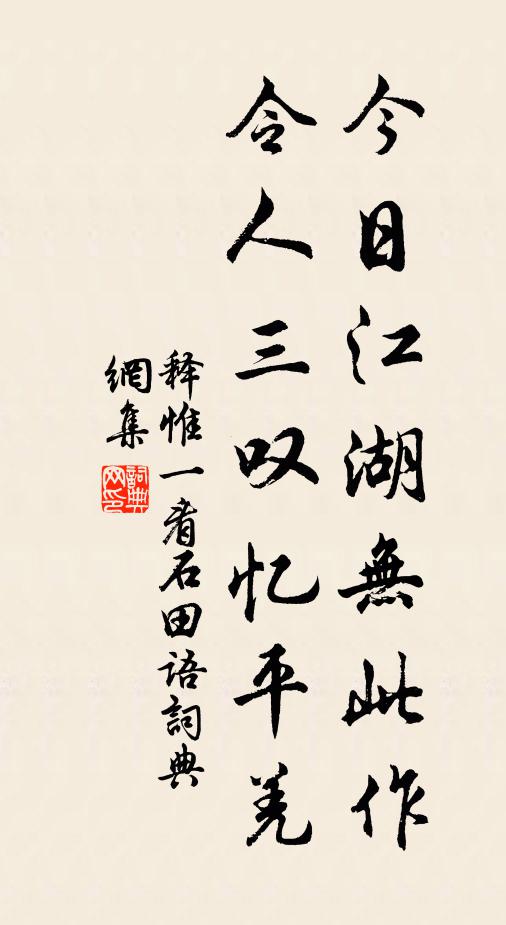 今日江湖無此作
令人三叹忆平羌
释惟一看石田语詞典
網集
詞典
网印